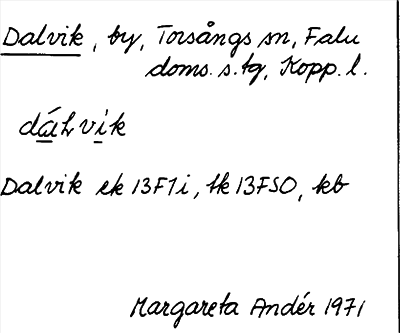 Dalvik, by, Torsångs sn, Falu
doms. s. tg, Kopp. l.
dálvik
Dalvik ek 13F1i, tk 13FSO, kb
Margareta Andér 1971